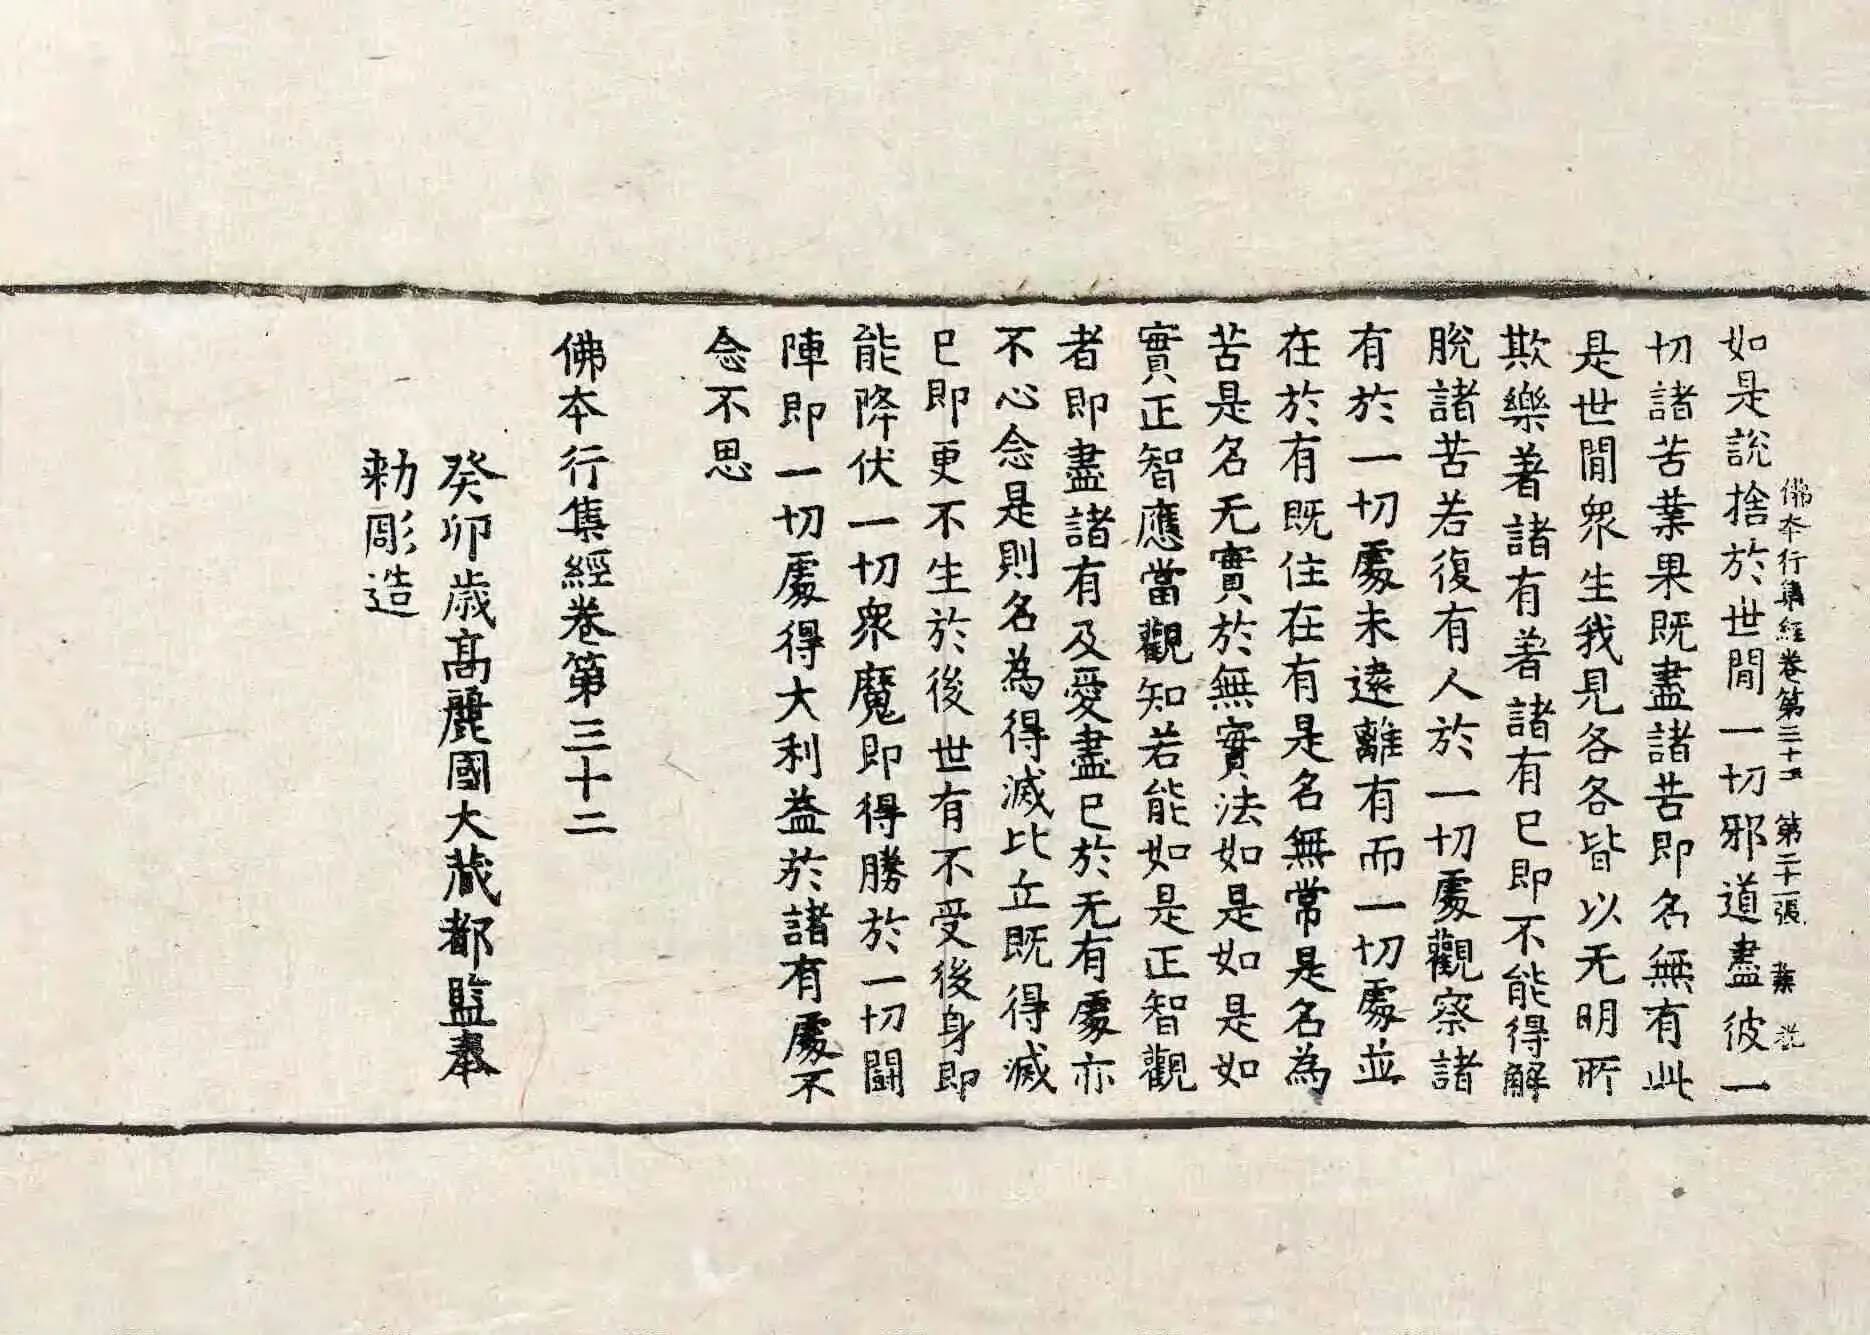 佛本行集經卷第三十二 第二十一張 業
如是說捨於世間一切邪道盡彼一
切諸苦業果既盡諸苦即名無有此
是世閒衆生我見各各皆以无明所
欺樂著諸有著諸有已即不能得解
脫諸苦若復有人於一切處觀察諸
有於一切處未遠離有而一切處並
在於有既住在有是名無常是名為
苦是名无實於無實法如是如是如
實正智應當觀知若能如是正智觀
者即盡諸有及愛盡已於无有處亦
不心念是則名為得滅比丘既得滅
已即更不生於後世有不受後身即
能降伏一切衆魔即得勝於一切闘
陣即一切處得大利益於諸有處不
念不思
佛本行集經卷第三十二
癸卯歲高麗國大藏都監奉
勅彫造